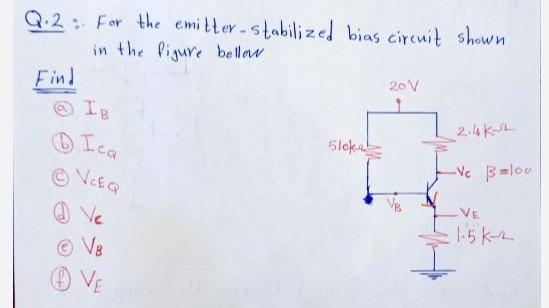 Q.2 :. For the emitter-stabilized bias circuit shown
in the figure bellow
Find
ⓐ IB
ⓑ ICQ
ⓒ VCEQ
ⓓ Vc
ⓔ VB
ⓕ VE
20V
2.4K-Ω
510kΩ
Vc β=100
VB
VE
1.5K-Ω